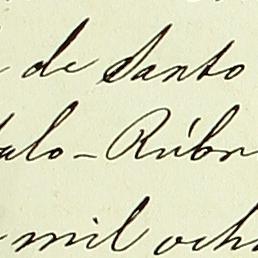 de Santo
alo-Rúbr
mil och